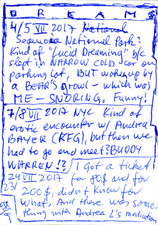 DREAMS
4/5 VII 2017 National
Sequoia National Park?
Kind of "Lucid Dreaming" b/c
slept in NARROW cold car on
parking lot, BUT woken up by
a BEAR'S growl - which was
ME - SNORING. Funny!
7/8 VII 2017 NYC Kind of
erotic encounter w/ Andrea
BAYER (KFG), but then we
had to go and meet? BUDDY
WARREN!?
I got a ticket!
23/24 VII 2017 for 80$ and for
200$, didn't know for
what. And there was some-
thing with Andrea L's